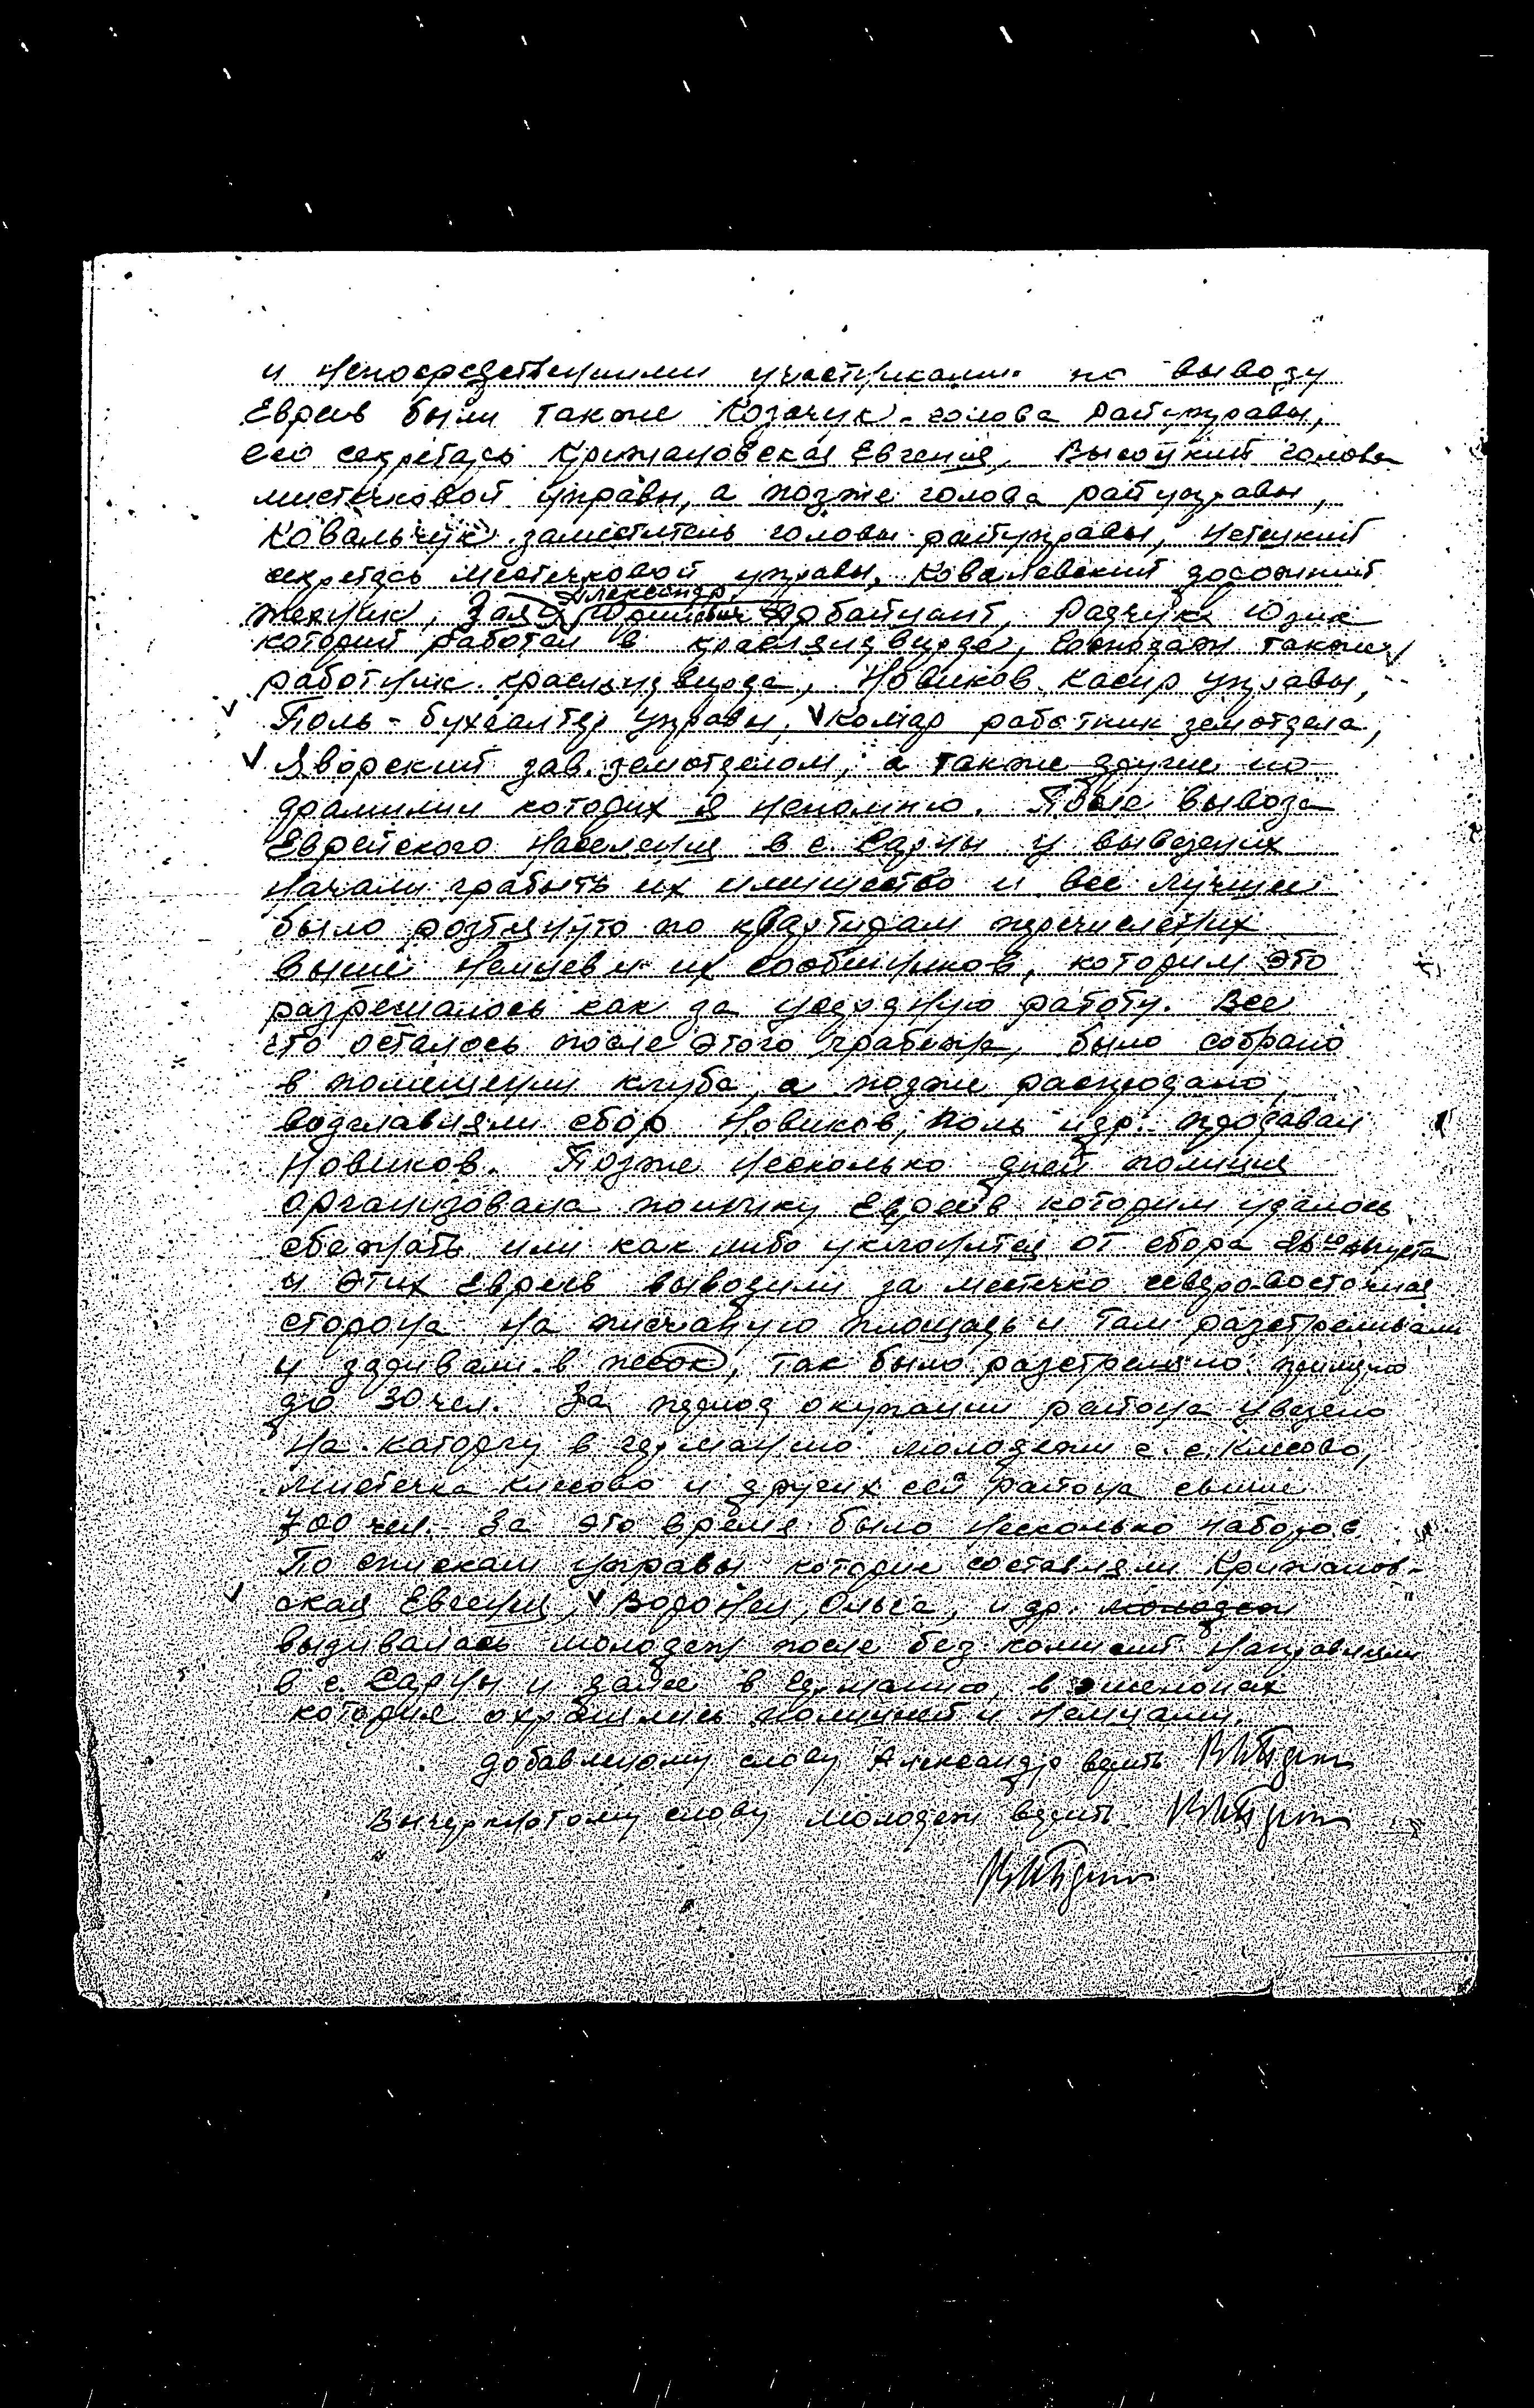 и непосредственними участниками по вывозу
Евреев были также Козачук - голова Райуправы,
его секретарь Крижановская Евгения, Высоцкий голова
мистечковой управы, а позже голова райуправы,
Ковальчук заместитель головы райуправы, Нетецкий
секретарь местечковой управы, Ковалевский дорожний
Александр
техник, Зая Юшкевич Арбайтцамт, Радчук Юзик
который работал в крайсляндвирда, также
работник крайсляндвирда, Новиков касир управы,
Поль - бухгалтер управы, Комар работник земотдела,
Яворский зав. земотделом, а также другие но
фамилии которих я непомню. После вывоза
Еврейского населения в с. Сарны у вывезених
начали грабыть их имищество и все лучшее
было розтянуто по квартирам перечислених
выше немцев и их сообщников, которим это
разрешалось как за усердную работу. Все
что осталось после этого грабежа, было собрано
в помещении клуба, а позже распродано,
возглавляли сбор Новиков, Поль и др. продавал
Новиков. Позже несколько дней полиция
организовала поимку Евреев которим удалось
сбежать или как либо уклонится от сбора 26го августа
и этих Евреев выводили за местечко северо-восточная
сторона на писчаную площадь и там разстреливали
и зарывали в песок, так было разстреляно примерно
до 30 чел. За период окупации района увезено
на каторгу в германию молодежи с с. Клесово,
мистечка Клесово и других сел района свыше
700 чел. За это время было несколько наборов
По спискам управы которие составляли Крижанов-
ская Евгения, Воронец Ольга, и др. молодеж
вызывалась молодеж после без комисий направляли
в с. Сарны и далее в Германию, в эшелонах
которие охранялись полицией и немцами.
добавленому слову Александр верить
Вычеркнутому слову молодеж верить